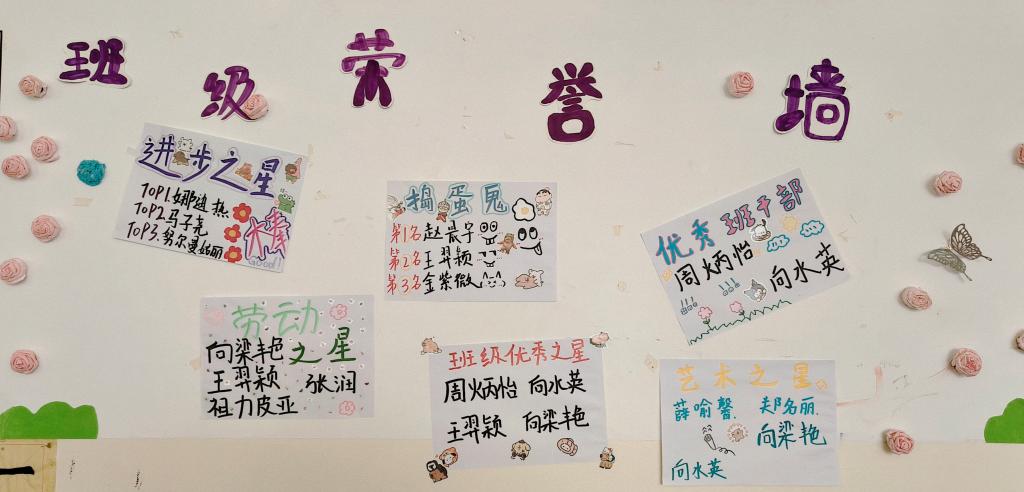 班级荣誉墙
进步之星
TOP1.娜迪热
TOP2.马子尧
TOP3.努尔曼古丽
棒
GOOD!
捣蛋鬼
第1名 赵晨宇
第2名 王羿颖
第3名 金紫微
优秀班干部
周炳怡
向水英
劳动之星
向梁艳
王羿颖 张润
祖力皮亚
班级优秀之星
周炳怡 向水英
王羿颖 向梁艳
艺术之星
薛喻馨 郏名丽.
向梁艳
向水英